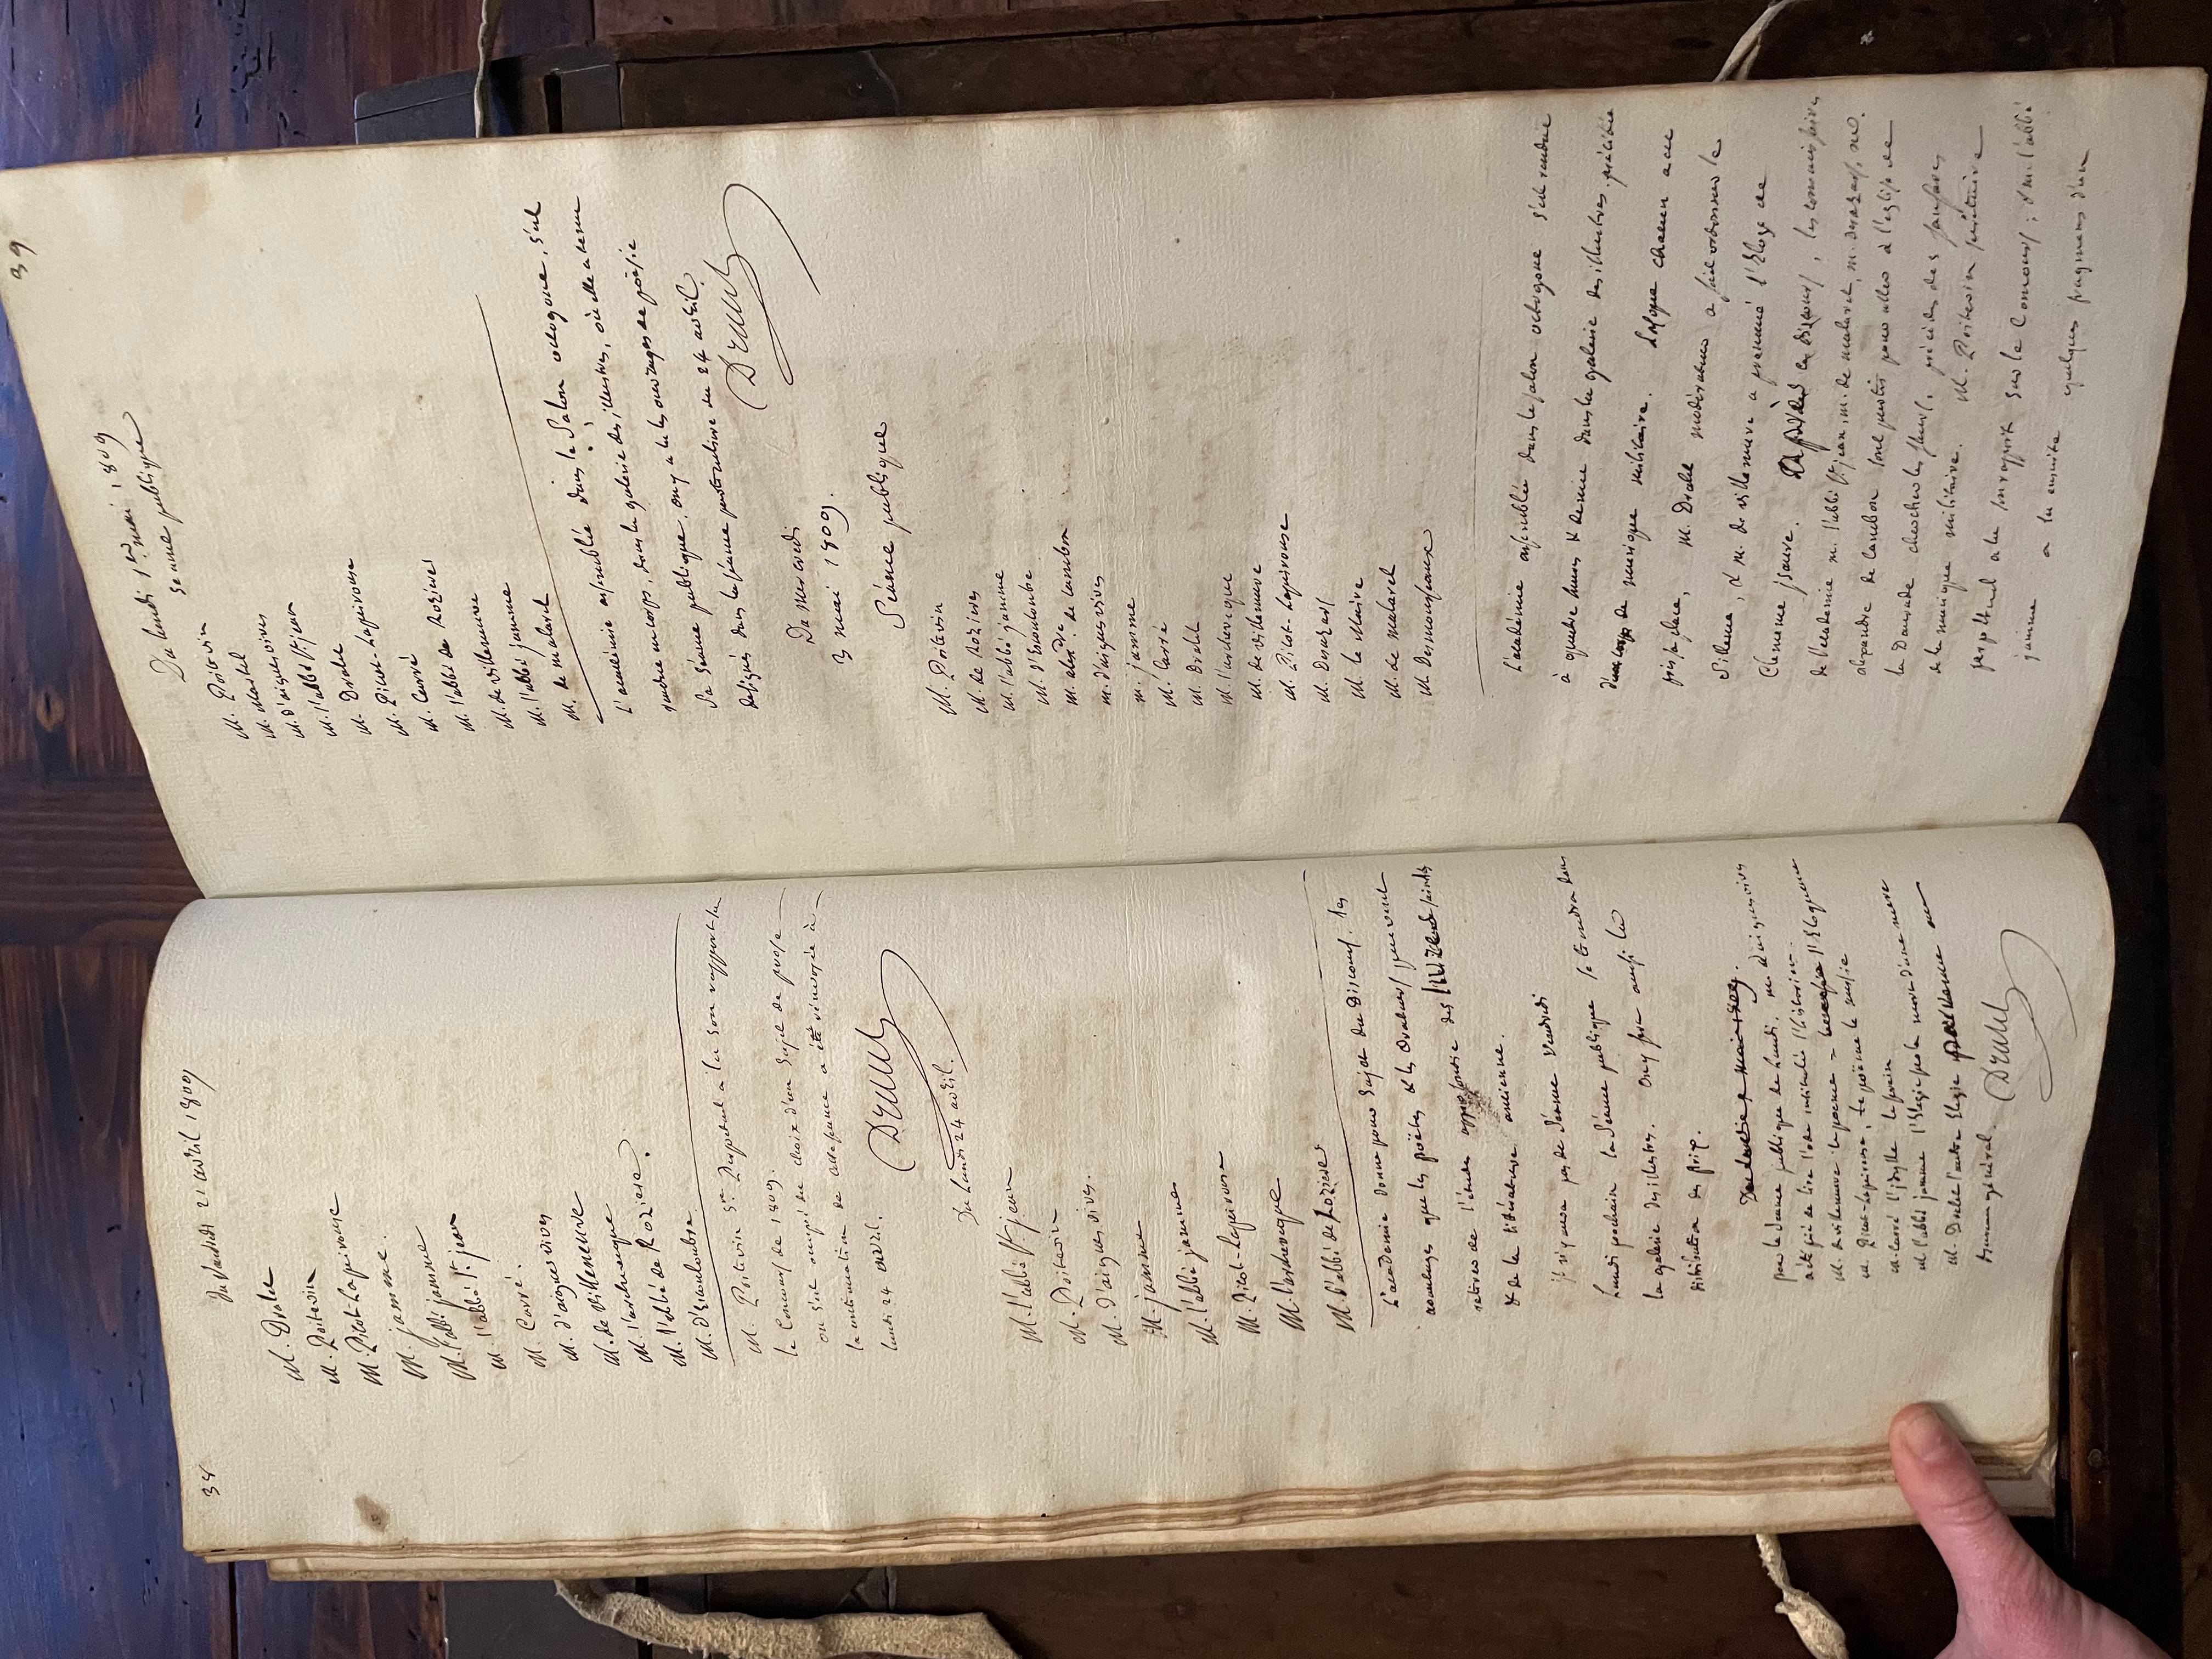 38
Du Vendredi 21 avril 1809
M. Dralet
M. Poitevin
M. Picot-Lapeirouse
M. jamme.
M. l'abbé jamme
M. l'abbé St. jean
M. Carré.
M. d'aiguesvives
M. de Villeneuve
M. l'archeveque
M. l'abbé de Roziere.
M. d'Escouloubre
M. Poitevin Sre. Perpetuel a lu son rapport sur
le Concours de 1809.
on s'est occupé du choix d'un Sujet de prose
la continuation de cette séance a été renvoyée à
lundi 24 avril.
Dralet
Du Lundi 24 avril.
M. l'abbé St. jean
M. Poitevin
M. d'aiguesvives.
M. jamme
M. l'abbé jamme
M. Picot-Lapeirouse
M. l'archeveque
M. l'abbé de Rozieres
L'academie donne pour Sujet du Discours. les
avantages que les poëtes & les Orateurs peuvent
retirer de l'étude approfondie des
& de la littérature ancienne.
il n'y aura pas de séance Vendredi
Lundi prochain la séance publique se tiendra dans
la galerie des illustres. on y fera aussi la
distribution des prix.
pour la séance publique de lundi. M. d'aiguesvives
a été prié de lire l'ode intitulée
M. de villeneuve le poeme l'Eloquence
M. Picot-lapeirouse, le poëme le
M. Carré l'idylle
M. l'abbé jamme l'Elegie sur la mort d'une mere
M. Dralet l'autre Elegie
Dralet
39
Du lundi 1er. mai 1809
Séance publique
M. Poitevin
M. martel
M. d'aiguesvives
M. l'abbé St. jean
M. Dralet
M. Picot-Lapeirouse
M. Carré
M. l'abbé de Rozieres
M. de Villeneuve
M. l'abbé jamme
M. de malaret
L'académie assemblée dans le Salon octogone, s'est
rendue en corps, dans la galerie des illustres, où elle a tenu
sa séance publique. on y a lu les ouvrages de poésie
désignés dans la séance particuliere du 24 avril.
Dralet
Du mercredi
3 mai 1809.
Séance publique
M. Poitevin
M. de Rozieres
M. l'abbé jamme
M. d'Escouloubre
M. alexdre. de Cambon
M. d'aiguesvives
M. jamme
M. Carré
M. Dralet
M. l'archeveque
M. de villeneuve
M. Picot-Lapeirouse
M. Desazars
M. le Maire
M. de malaret
M. Desmousseaux
L'académie assemblée dans le salon octogone s'est rendue
à quatre heures & demie dans la galerie des illustres. précédée
d'un corps de musique militaire. Lorsque chacun a eu
pris place, M. Dralet modérateur a fait ordonner le
silence, & M. de villeneuve a prononcé l'Eloge de
Clemence jsaure. ce discours, les commissaires
de l'academie M. l'abbé St. jean, M. de malaret, M. desazars, M.
alexandre de Cambon sont partis pour aller à l'eglise de
la Daurade chercher les fleurs, précédés des
de la musique militaire. M. Poitevin secretaire
perpétuel a lu son rapport sur le Concours; & M. l'abbé
jamme a lu ensuite quelques fragmens d'un